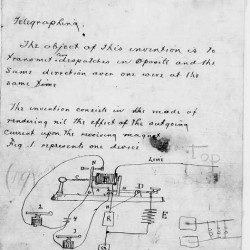 Telegraphing.
The object of this invention is to
transmit despatches in oposite and the
same direction over one wire at the
same time
The invention consists in the mode of
rendering nil the effect of the outgoing
current upon the receiving magnet
Fig. 1 represents one device
N
Line
2
3
4
R
E
Top